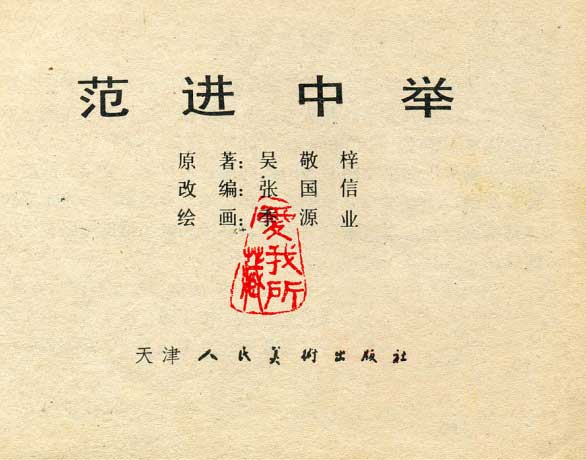 范进中举
原著：吴敬梓
改编：张国信
绘画：李源业
爱我所藏
天津人民美術出版社